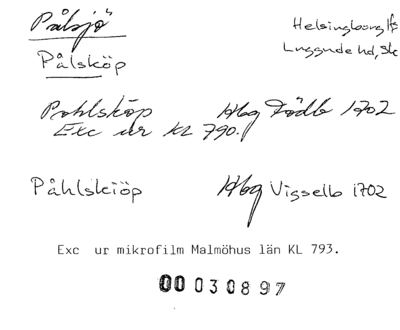 Pålsjö Helsingborg lfs
Pålsköp Luggude hd, Sk
Pohlsköp Hbg Födb 1702
Exc ur KL 790.
Påhlskiöp Hbg Vigselb 1702
Exc ur mikrofilm Malmöhus län KL 793.
00030897